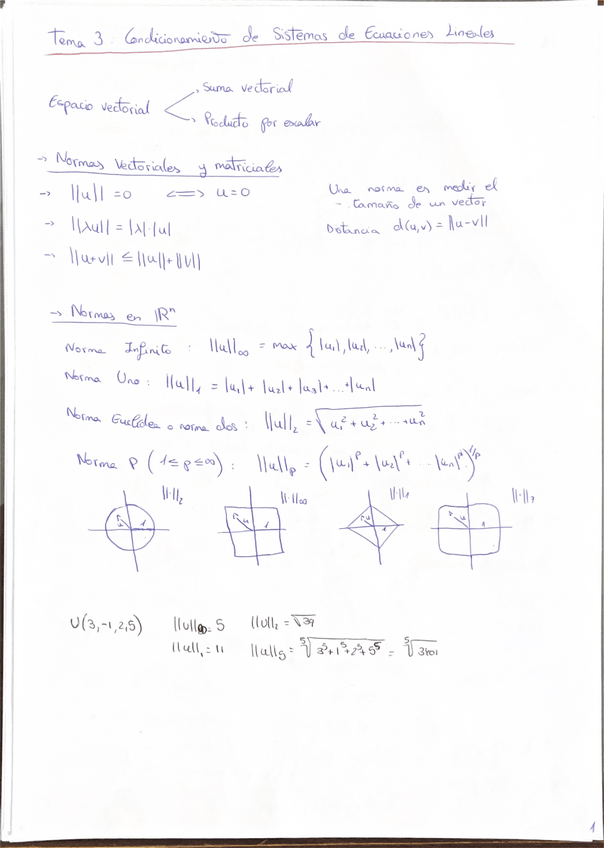 Tema 3. Condicionamiento de Sistemas de Ecuaciones Lineales
Suma vectorial
Espacio vectorial
Producto por escalar
→ Normas Vectoriales y matriciales
→ ||u|| = 0 <=> u = 0
Una norma es medir el
tamaño de un vector
→ ||λu|| = |λ|·|u|
Distancia d(u,v) = ||u-v||
→ ||u+v|| ≤ ||u|| + ||v||
→ Normas en ℝⁿ
Norma Infinito : ||u||∞ = max {|u₁|, |u₂|, ..., |uₙ|}
Norma Uno : ||u||₁ = |u₁| + |u₂| + |u₃| + ... + |uₙ|
Norma Euclídea o norma dos : ||u||₂ = √(u₁² + u₂² + ... + uₙ²)
Norma P (1 ≤ p ≤ ∞) : ||u||ₚ = (|u₁|ᵖ + |u₂|ᵖ + ... |uₙ|ᵖ)^(1/p)
||·||₂ ||·||∞ ||·||₁ ||·||₇
u 1 u 1 u 1 u 1
U(3,-1,2,5) ||u||∞ = 5 ||u||₂ = √39
||u||₁ = 11 ||u||₅ = ⁵√(3⁵+1⁵+2⁵+5⁵) = ⁵√3401
1